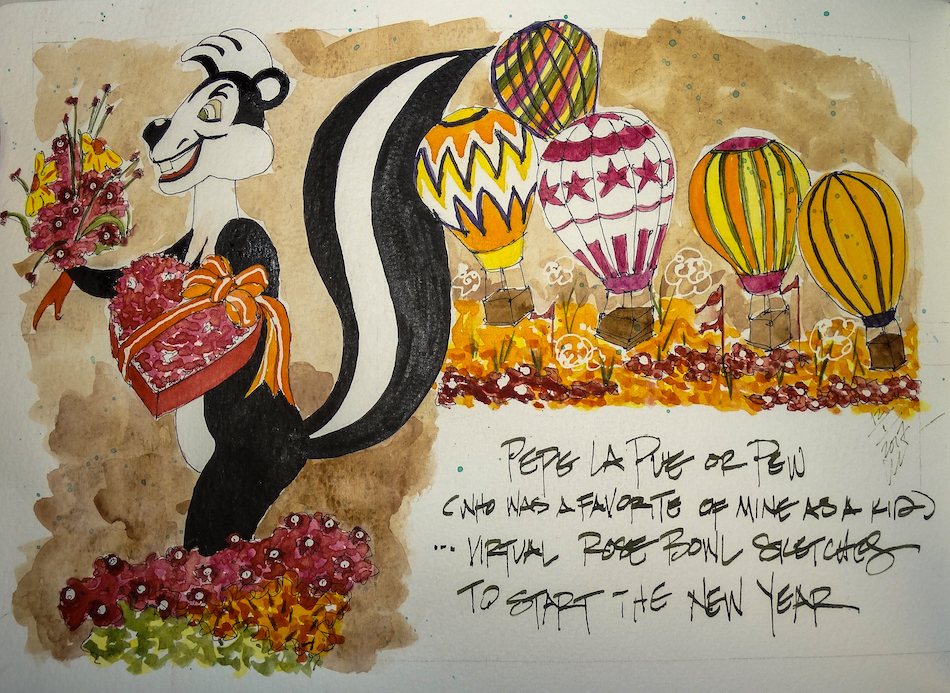 PEPE LA PUE OR PEW
(WHO WAS A FAVORITE OF MINE AS A KID)
... VIRTUAL ROSE BOWL SKETCHES
TO START THE NEW YEAR